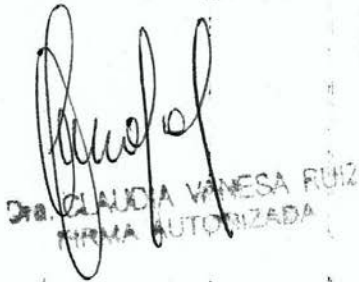 Dra. CLAUDIA VANESA RUIZ
FIRMA AUTORIZADA